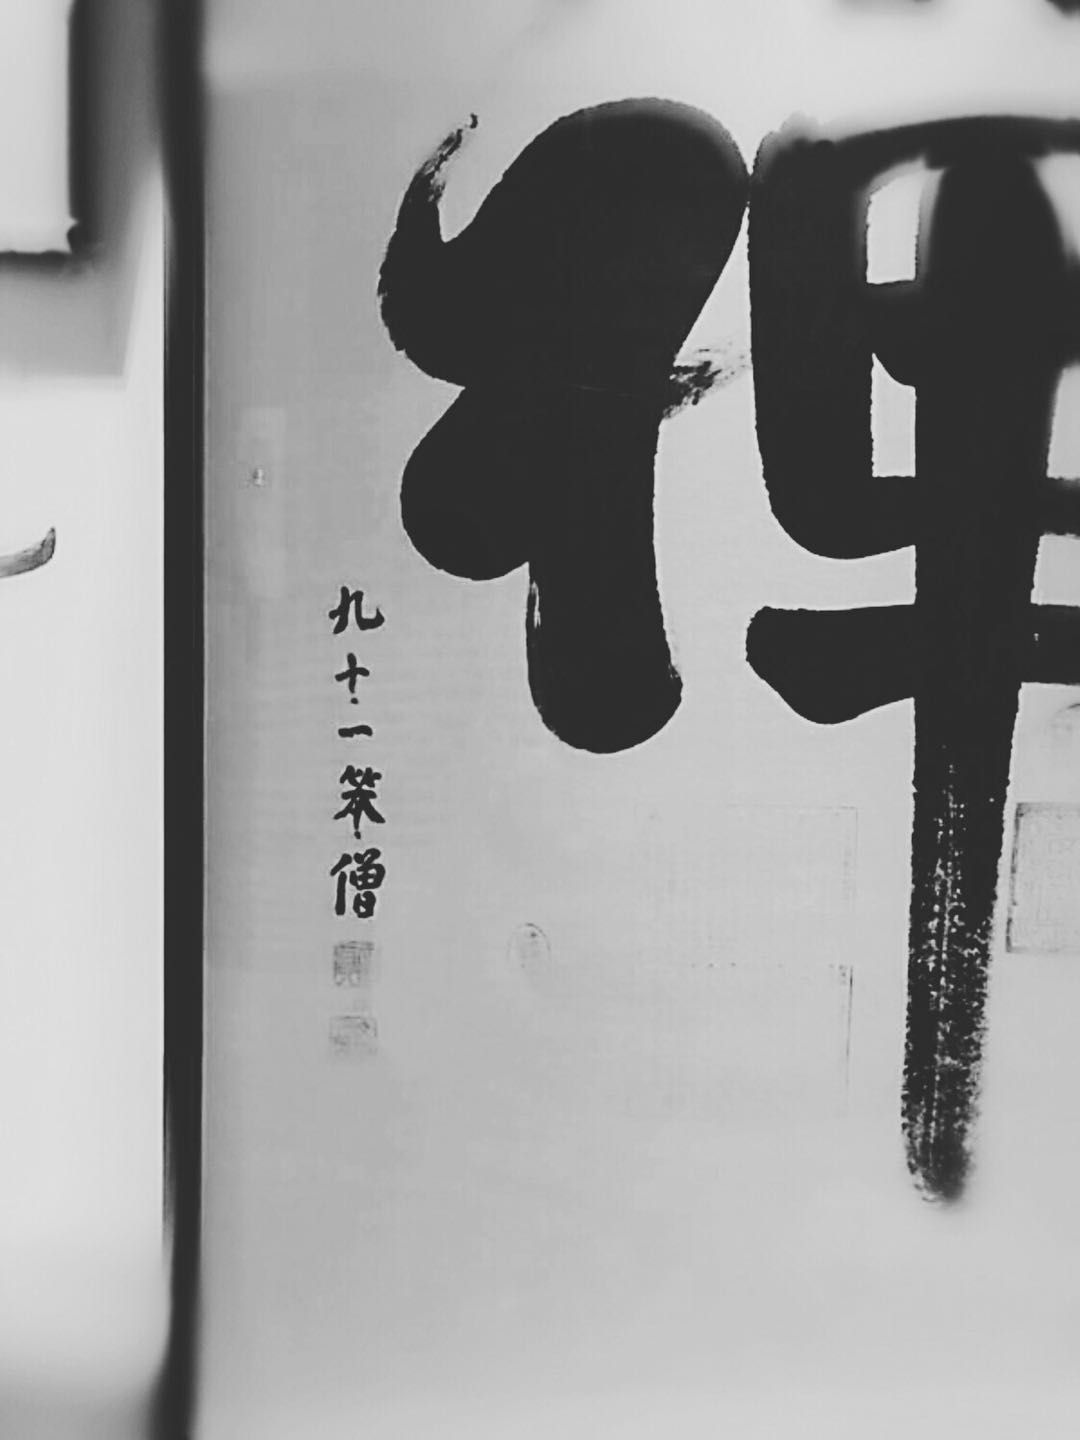 禅
九十一笨僧